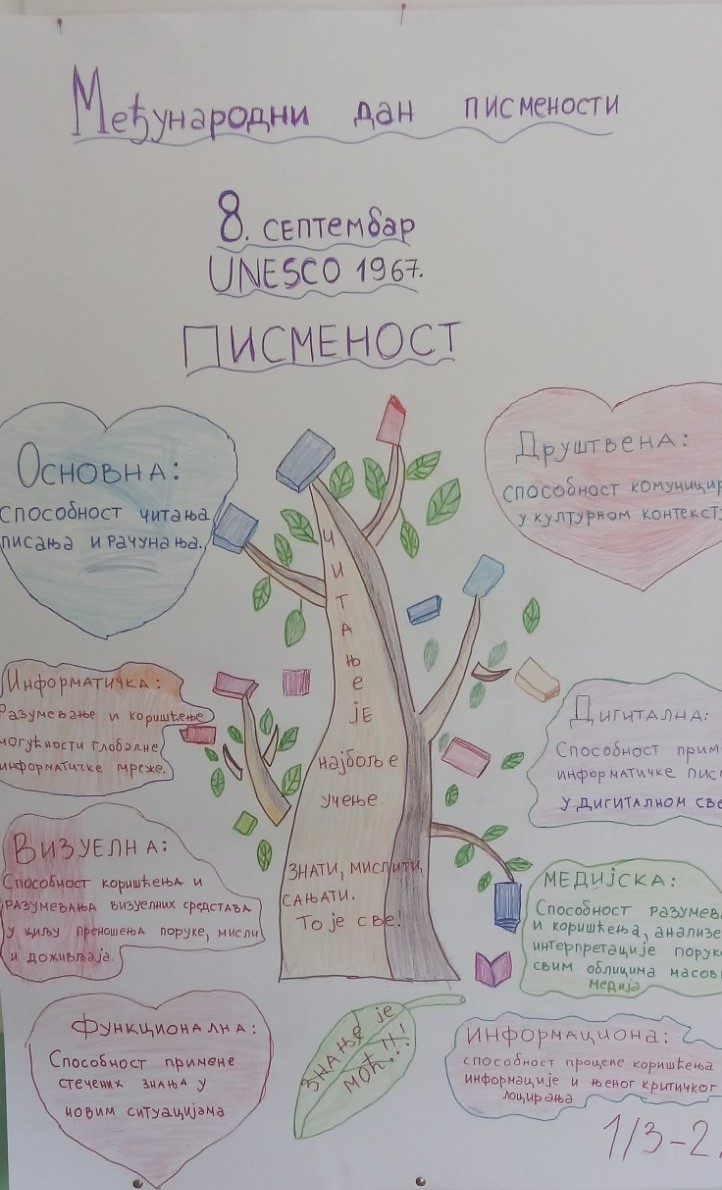 Међународни дан писмености
8. септембар
UNESCO 1967.
ПИСМЕНОСТ
Основна:
способност читања
писања и рачунања.
Друштвена:
способност
у културном
ЧИТАЊЕ
ЈЕ
најбоље
учење
ЗНАТИ, МИСЛИТИ,
САЊАТИ.
То је све!
Информатичка:
Разумевање и коришћење
могућности глобалне
информатичке мреже.
Дигитална:
Способност
информатичке
у дигиталном
Визуелна:
Способност коришћења и
разумевања визуелних средстава
у циљу преношења поруке, мисли
и доживљаја.
МЕДИЈСКА:
Способност
и коришћења,
интерпретације
свим облицима
медија
Функционална:
Способност примене
стечених знања у
новим ситуацијама
ЗНАЊЕ је
моћ...!
Информациона:
способност процеле коришћења
информације и њеног критичког
лоцирања
1/3-2